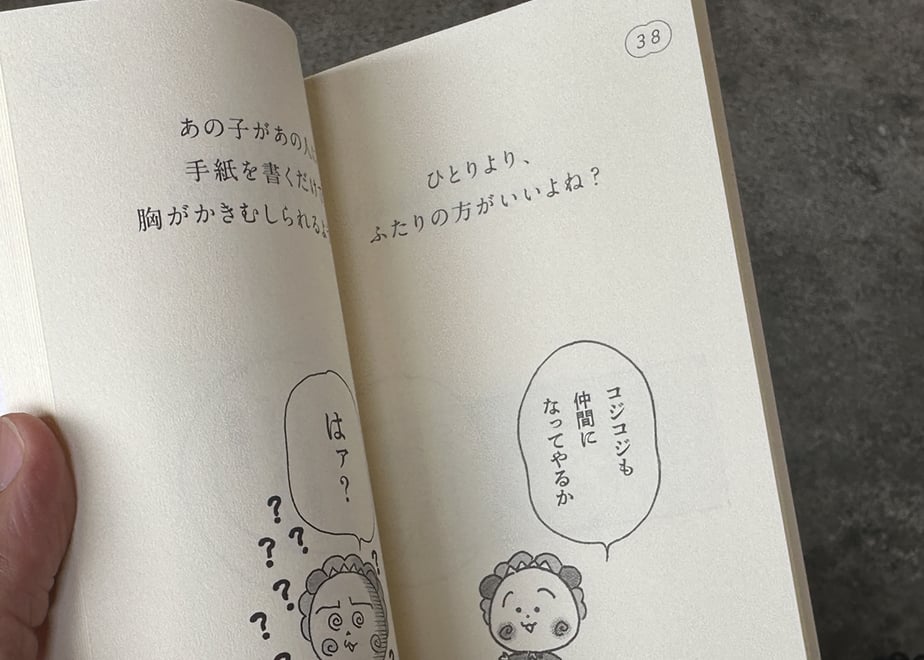 あの子があの人
手紙を書くだけ
胸がかきむしられる
はァ?
? ? ? ? ? ?
38
ひとりより、
ふたりの方がいいよね?
コジコジも
仲間に
なってやるか